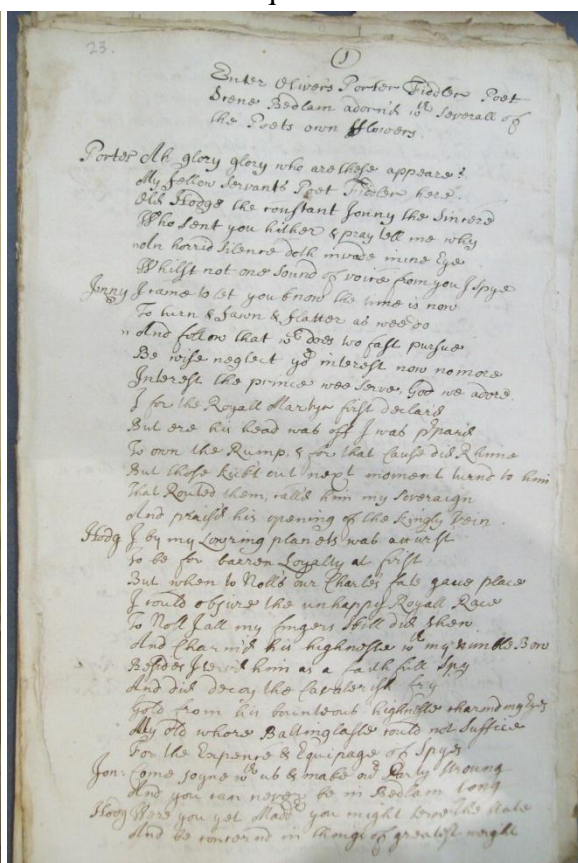 23.
(1)
Enter Olivers Porter Fiddler Poet
Scene Bedlam adorn'd wth severall of
the Poets own fflowers.
Porter Ah glory glory who are these appeare?
My fellow servants Poet Fiddler here.
Old Hodge the constant Jonny the sincere
Who sent you hither & pray tell me why
An horrid silence doth invade mine Eye
Whilst not one sound of voice from you I spye
Jonny I came to let you know the time is now
To turn & fawn & flatter as wee do
And follow that wch does too fast pursue
Be wise neglect yor interest now no more
Interest the prince wee serve, God we adore.
I for the Royall Martyr first declard
But ere his head was off I was ppard
To own the Rump, & for that cause did Rhime
But those kickt out next moment turnd to him
That Routed them, call'd him my Soveraign
And prais'd his opening of the kingly Vein.
Hodg I by my Lowring planets was accurst
To be for barren Loyalty at first
But when to Noll's our Charles fate gave place
I could abjure the unhappy Royall Race
To Noll I all my fingers skill did shew
And Charm'd his highnesse wth my nimble Bow
Besides I serv'd him as a faithfull Spy
And did decoy the Cavalerish fry
Gold from his bounteous highnesse charmd my Eyes
My old whore Baltinglasse could not suffice
For the Expence & Equipage of Spyes
Jon: Come joyne wth us & make our Party strong
And you can never be in Bedlam long
Hodg Were you yet Madd you might serve the state
And be concernd in things of greatest weight